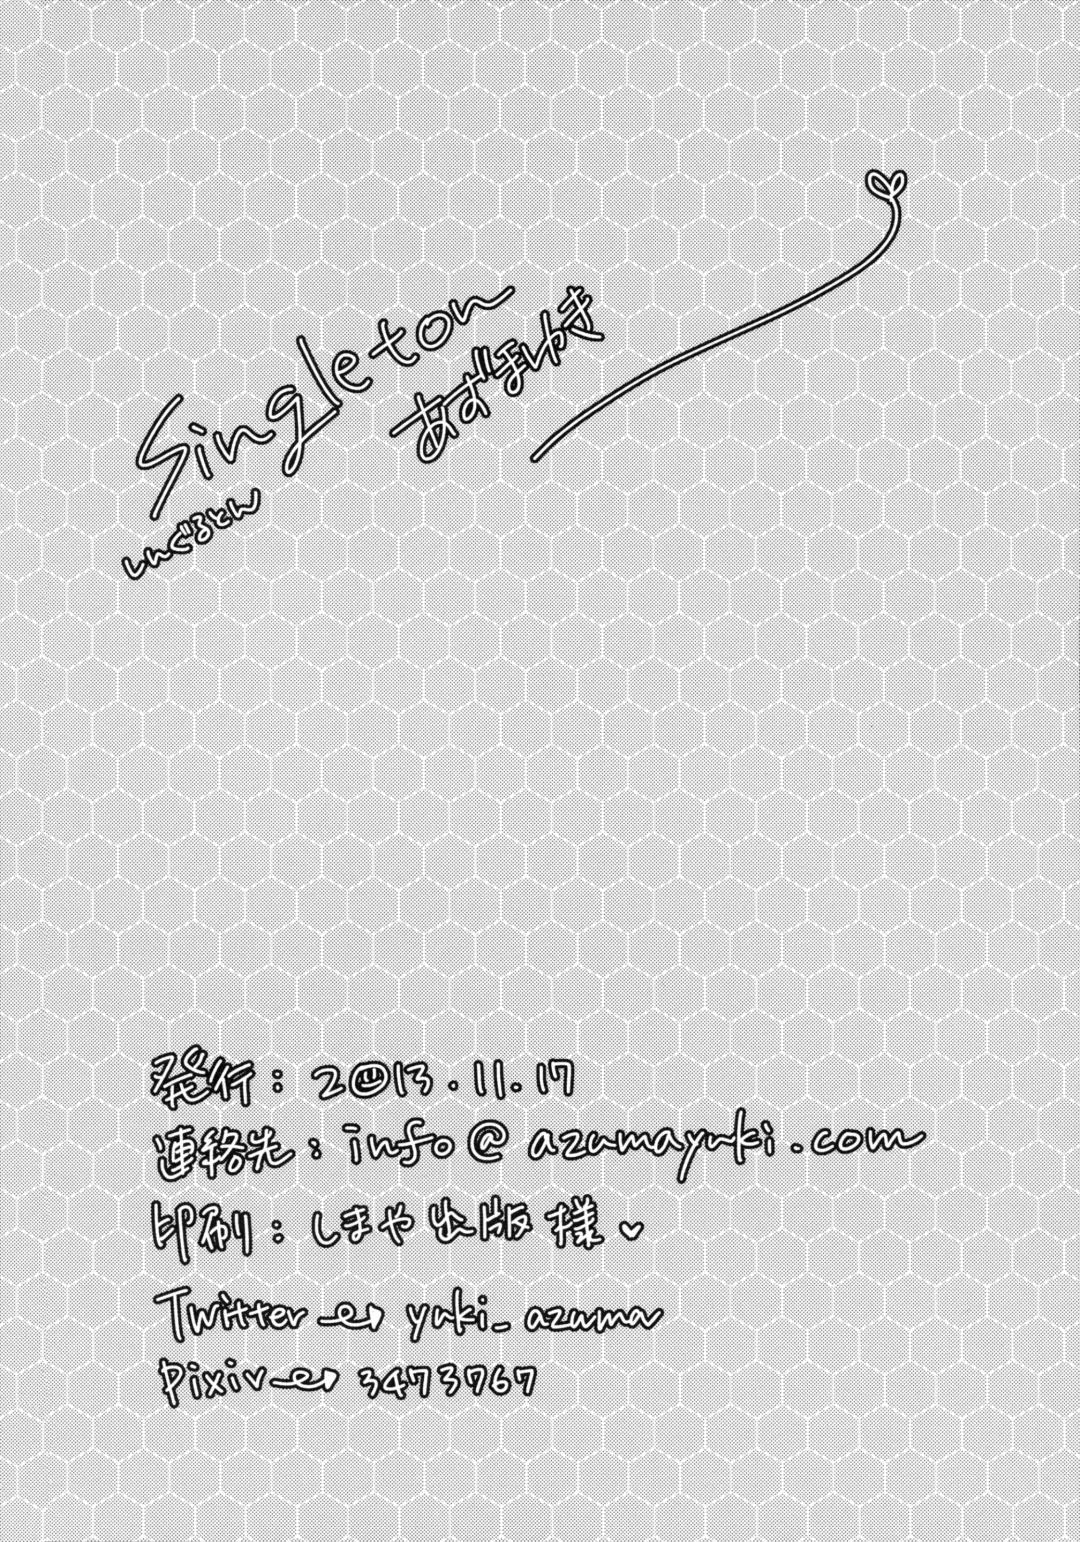 Singleton
しんぐるとん
あずまゆき
発行:2013.11.17
連絡先:info@azumayuki.com
印刷:しまや出版様♥
Twitter→yuki_azuma
Pixiv→3473767